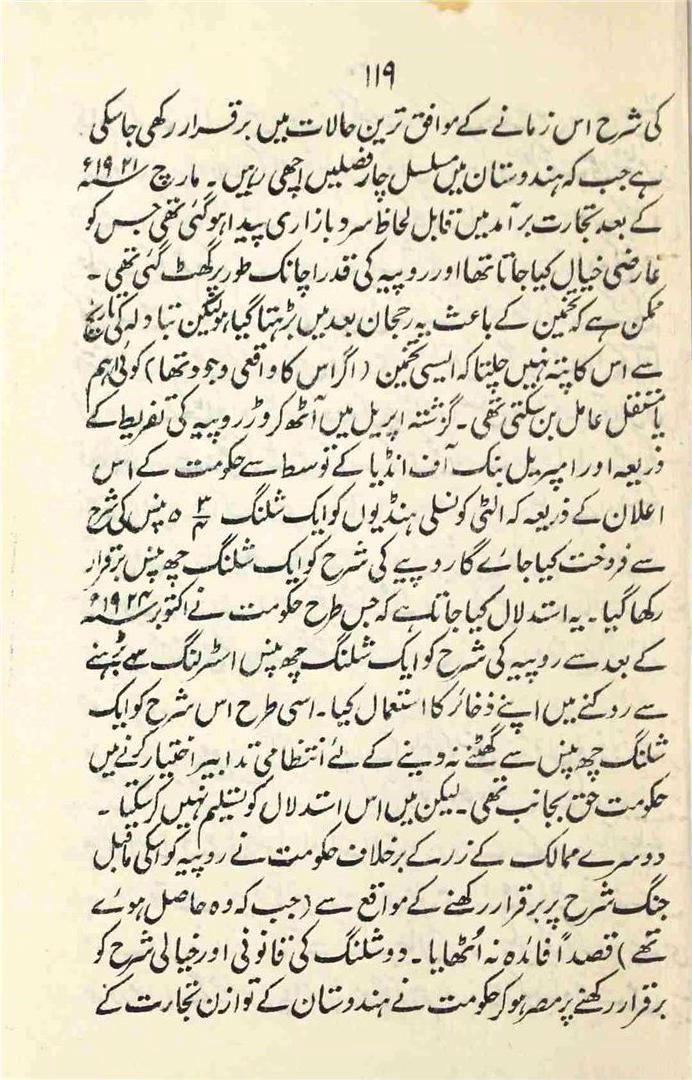 ۱۱۹
کی شرح اس زمانے کے موافق ترین حالات میں برقرار رکھی جاسکی
ہے جب کہ ہندوستان میں مسلسل چار فصلیں اچھی رہیں ۔ مارچ ۱۹۲۱ء
کے بعد تجارت برآمد میں قابل لحاظ سرد بازاری پیدا ہوگئی تھی جس کو
عارضی خیال کیا جاتا تھا اور روپیہ کی قدر اچانک طور پر گھٹ گئی تھی ۔
ممکن ہے کہ تخمین کے باعث یہ رجحان بعد میں بڑہتا گیا ہو لیکن تبادلہ کی تاریخ
سے اس کا پتہ نہیں چلتا کہ ایسی تخمین (اگر اس کا واقعی وجود تھا) کوئی اہم
یا مستقل عامل بن سکتی تھی ۔ گزشتہ اپریل میں آٹھ کروڑ روپیہ کی تفریط کے
ذریعہ اور امپریل بنک آف انڈیا کے توسط سے حکومت کے اس
اعلان کے ذریعہ کہ الٹی کونسلی ہنڈیوں کو ایک شلنگ ۵ ۳/۴ پنس کی شرح
سے فروخت کیا جائے گا روپیے کی شرح کو ایک شلنگ چھ پنس برقرار
رکھا گیا ۔ یہ استدلال کیا جاتا ہے کہ جس طرح حکومت نے اکتوبر ۱۹۲۴ء
کے بعد سے روپیہ کی شرح کو ایک شلنگ چھ پنس اسٹرلنگ سے بڑہنے
سے روکنے میں اپنے ذخائر کا استعمال کیا ۔ اسی طرح اس شرح کو ایک
شلنگ چھ پنس سے گھٹنے نہ دینے کے لئے انتظامی تدابیر اختیار کرنے میں
حکومت حق بجانب تھی ۔ لیکن میں اس استدلال کو تسلیم نہیں کرسکتا ۔
دوسرے ممالک کے زر کے برخلاف حکومت نے روپیہ کو اسکی ماقبل
جنگ شرح پر برقرار رکھنے کے مواقع سے (جب کہ وہ حاصل ہوئے
تھے) قصداً فائدہ نہ اُٹھایا ۔ دو شلنگ کی قانونی اور خیالی شرح کو
برقرار رکھنے پر مصر ہوکر حکومت نے ہندوستان کے توازن تجارت کے